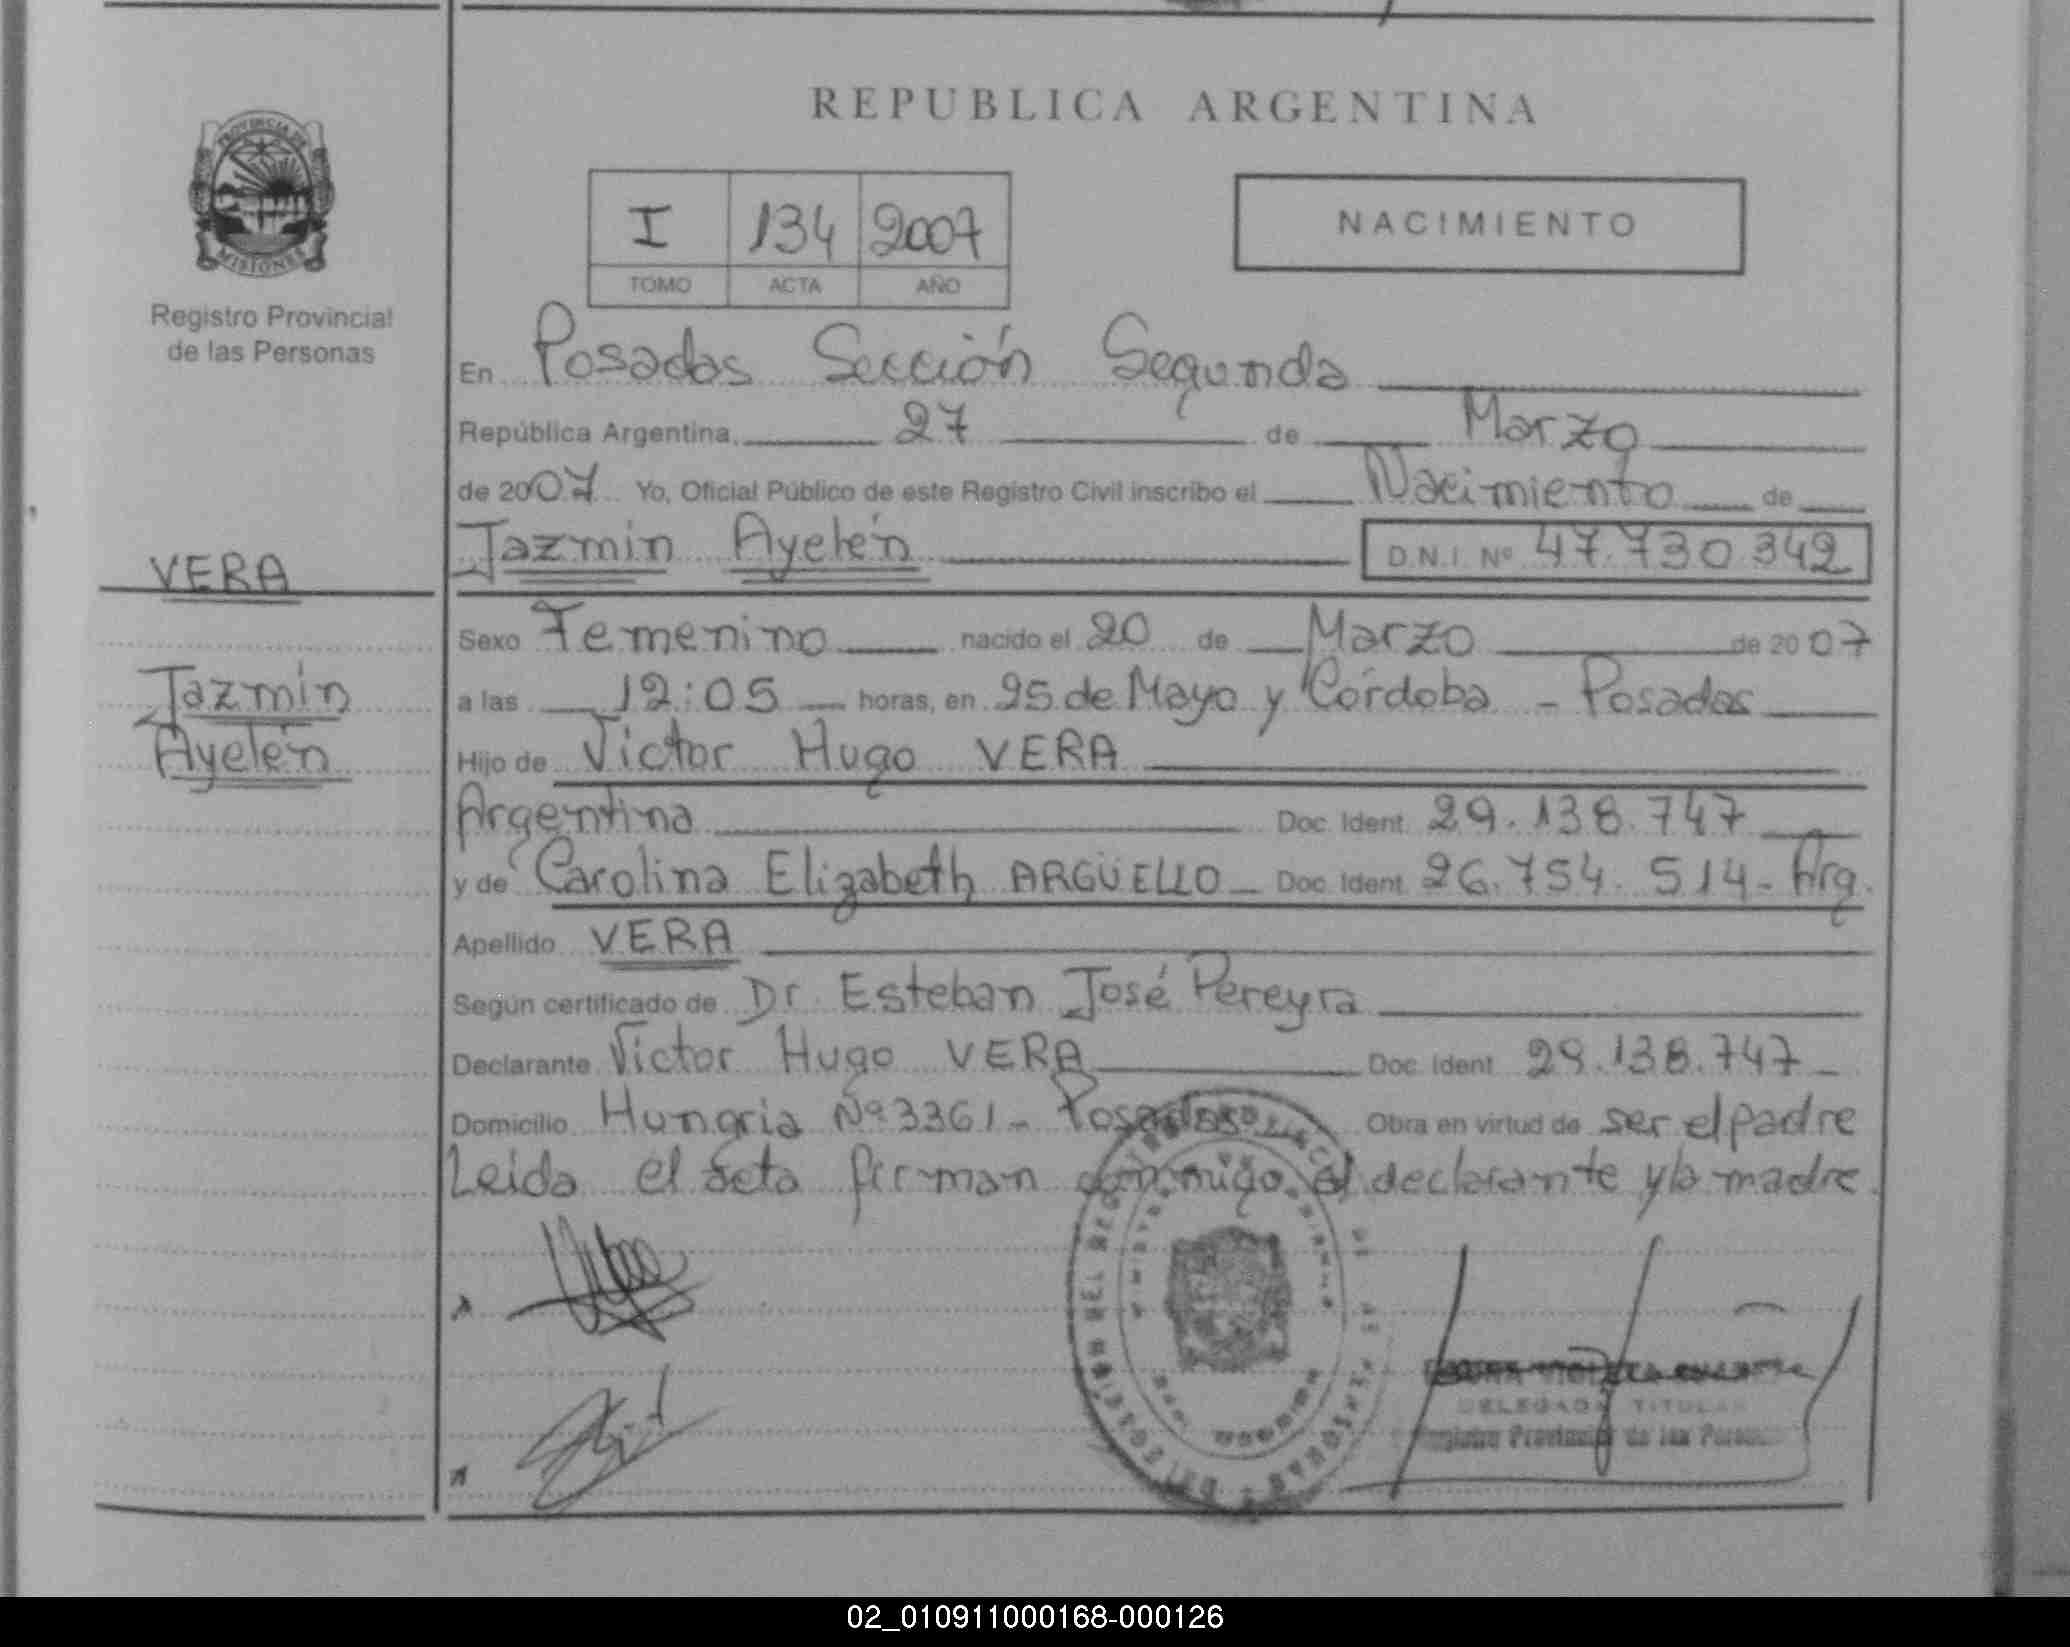 REPUBLICA ARGENTINA
PROVINCIA DE
MISIONES
Registro Provincial
de las Personas
I 134 2007
TOMO ACTA AÑO
NACIMIENTO
En Posadas Sección Segunda
República Argentina, 27 de Marzo
de 2007 Yo, Oficial Público de este Registro Civil inscribo el Nacimiento de
Jazmín Ayelén D.N.I. Nº 47.730.342
VERA
Jazmín
Ayelén
Sexo Femenino nacido el 20 de Marzo de 2007
a las 12:05 horas, en 25 de Mayo y Córdoba - Posadas
Hijo de Víctor Hugo VERA
Argentina Doc. Ident. 29.138.747
y de Carolina Elizabeth ARGÜELLO - Doc. Ident. 26.754.514- Arg.
Apellido VERA
Según certificado de Dr. Esteban José Pereyra
Declarante Víctor Hugo VERA Doc. Ident. 29.138.747 -
Domicilio Hungria Nº 3361 - Posadas Obra en virtud de ser el padre
Leida el acta firman conmigo el declarante y la madre.
DELEGADA TITULAR
Registro Provincial de las Personas
02_010911000168-000126